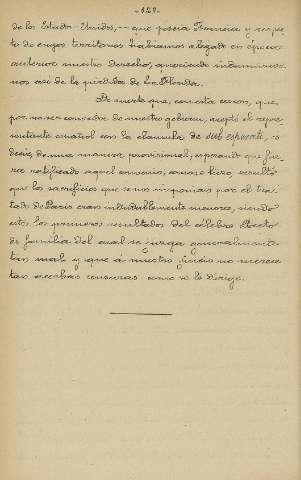 - 129 -
de los Estados-Unidos, -- que poseía Francia y respec-
to de cuyos territorios habíamos alegado en época
anterior nuestro derecho, queriendo indemnizar-
nos así de la pérdida de La Florida.
De suerte que, con esta cesión, que,
por no ser conocida de nuestro gobierno, aceptó el repre-
sentante español con la cláusula de sub esperati, o
decir de una manera provisional, esperando que fue-
ra ratificado aquel convenio, como se hizo, resultó
que los sacrificios que se nos imponían por el tra-
tado de París eran indudablemente menores, siendo
estos los primeros resultados del célebre Pacto
de familia del cual se juzga generalmente
tan mal y que á nuestro juicio no merece
tan acerbas censuras como se le dirige.